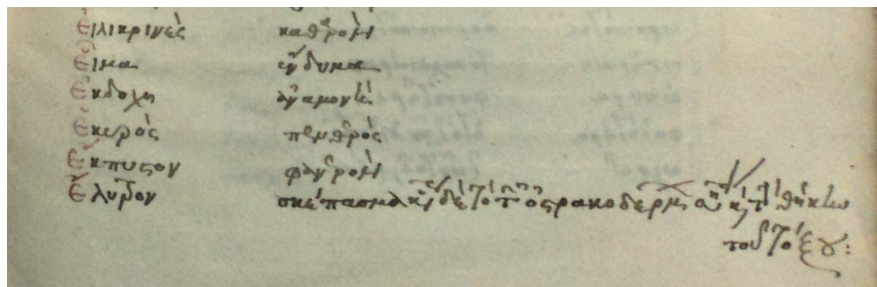 Εἰλικρινὲς καθαρὸν
Εἷμα ἔνδυμα
Ἐκδοχὴ ἀναμονὴ
Ἑκυρὸς πενθερὸς
Ἔκπυστον φανερὸν
Ἔλυτρον σκέπασμα καὶ δὲ τὸ τῶν ὀστρακοδέρμων καὶ τὴν θήκην
τοῦ τόξου: